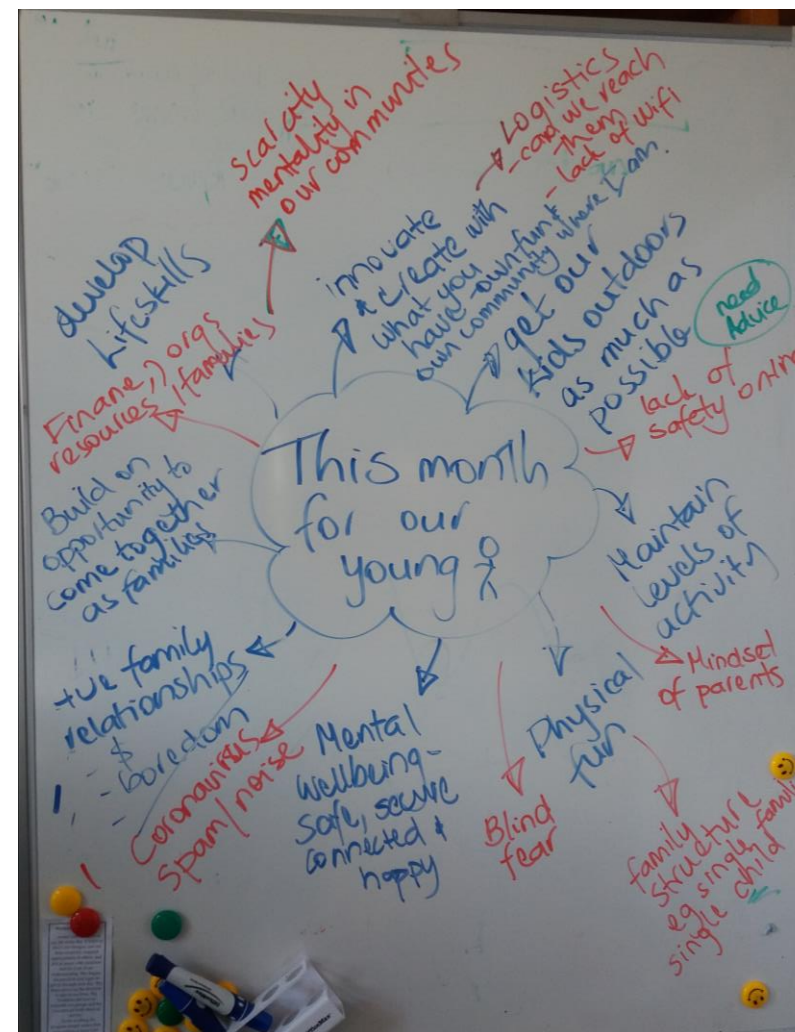 scarcity
mentality in
our communities
Logistics
- can we reach
them
- lack of wifi
innovate
& create with
what you
have - own fun &
own community where I am.
get our
kids outdoors
as much as
possible
need
Advice
lack of
safety online
develop
Lifeskills
Finane, orgs
resources / families
This month
for our
young
Build on
opportunity to
come together
as families
Maintain
levels of
activity
Mindset
of parents
+ve family
relationships
- boredom
Coronavirus
spam/noise
Mental
Wellbeing -
safe, secure
connected &
happy
Blind
fear
Physical
fun
family
structure
eg single families
single child